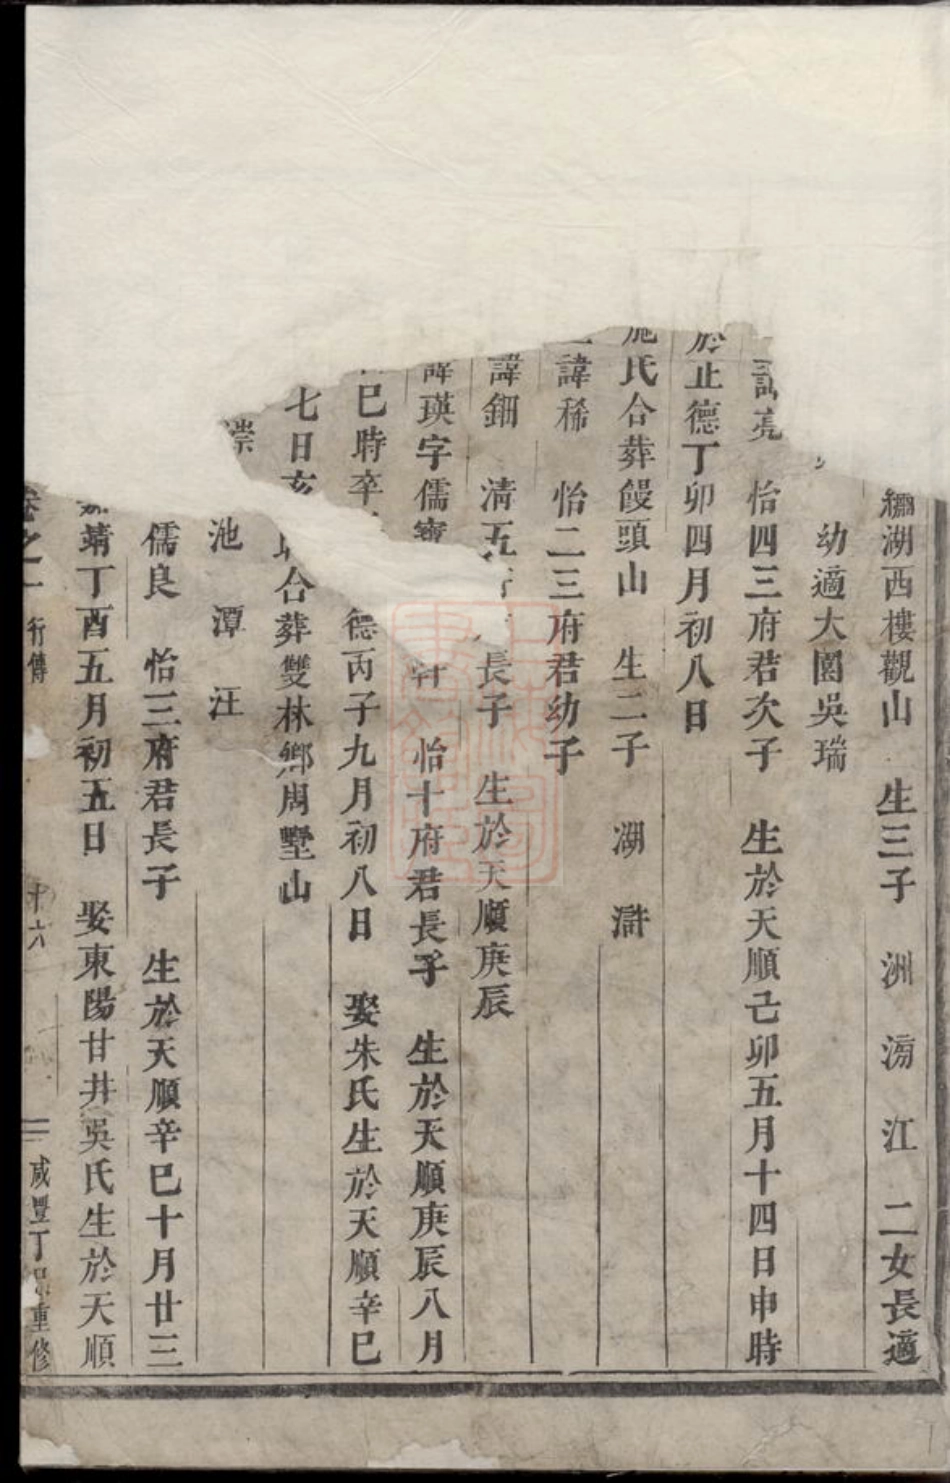 湖西樓觀山 生三子 洲 湧 江 二女長適
幼適大園吳瑞
亮 怡四三府君次子 生於天順己卯五月十四日申時
於正德丁卯四月初八日
施氏合葬饅頭山 生二子 湖 滸
諱稀 怡二三府君幼子
諱鈿 清五 長子 生於天順庚辰
諱瑛字儒寶 軒 怡十府君長子 生於天順庚辰八月
巳時卒 德丙子九月初八日 娶朱氏生於天順辛巳
七日亥 合葬雙林鄉周墅山
崇 池 潭 汪
儒良 怡三府君長子 生於天順辛巳十月廿三
嘉靖丁酉五月初五日 娶東陽甘井吳氏生於天順
卷之一 行傳 十六 咸豐丁巳重修